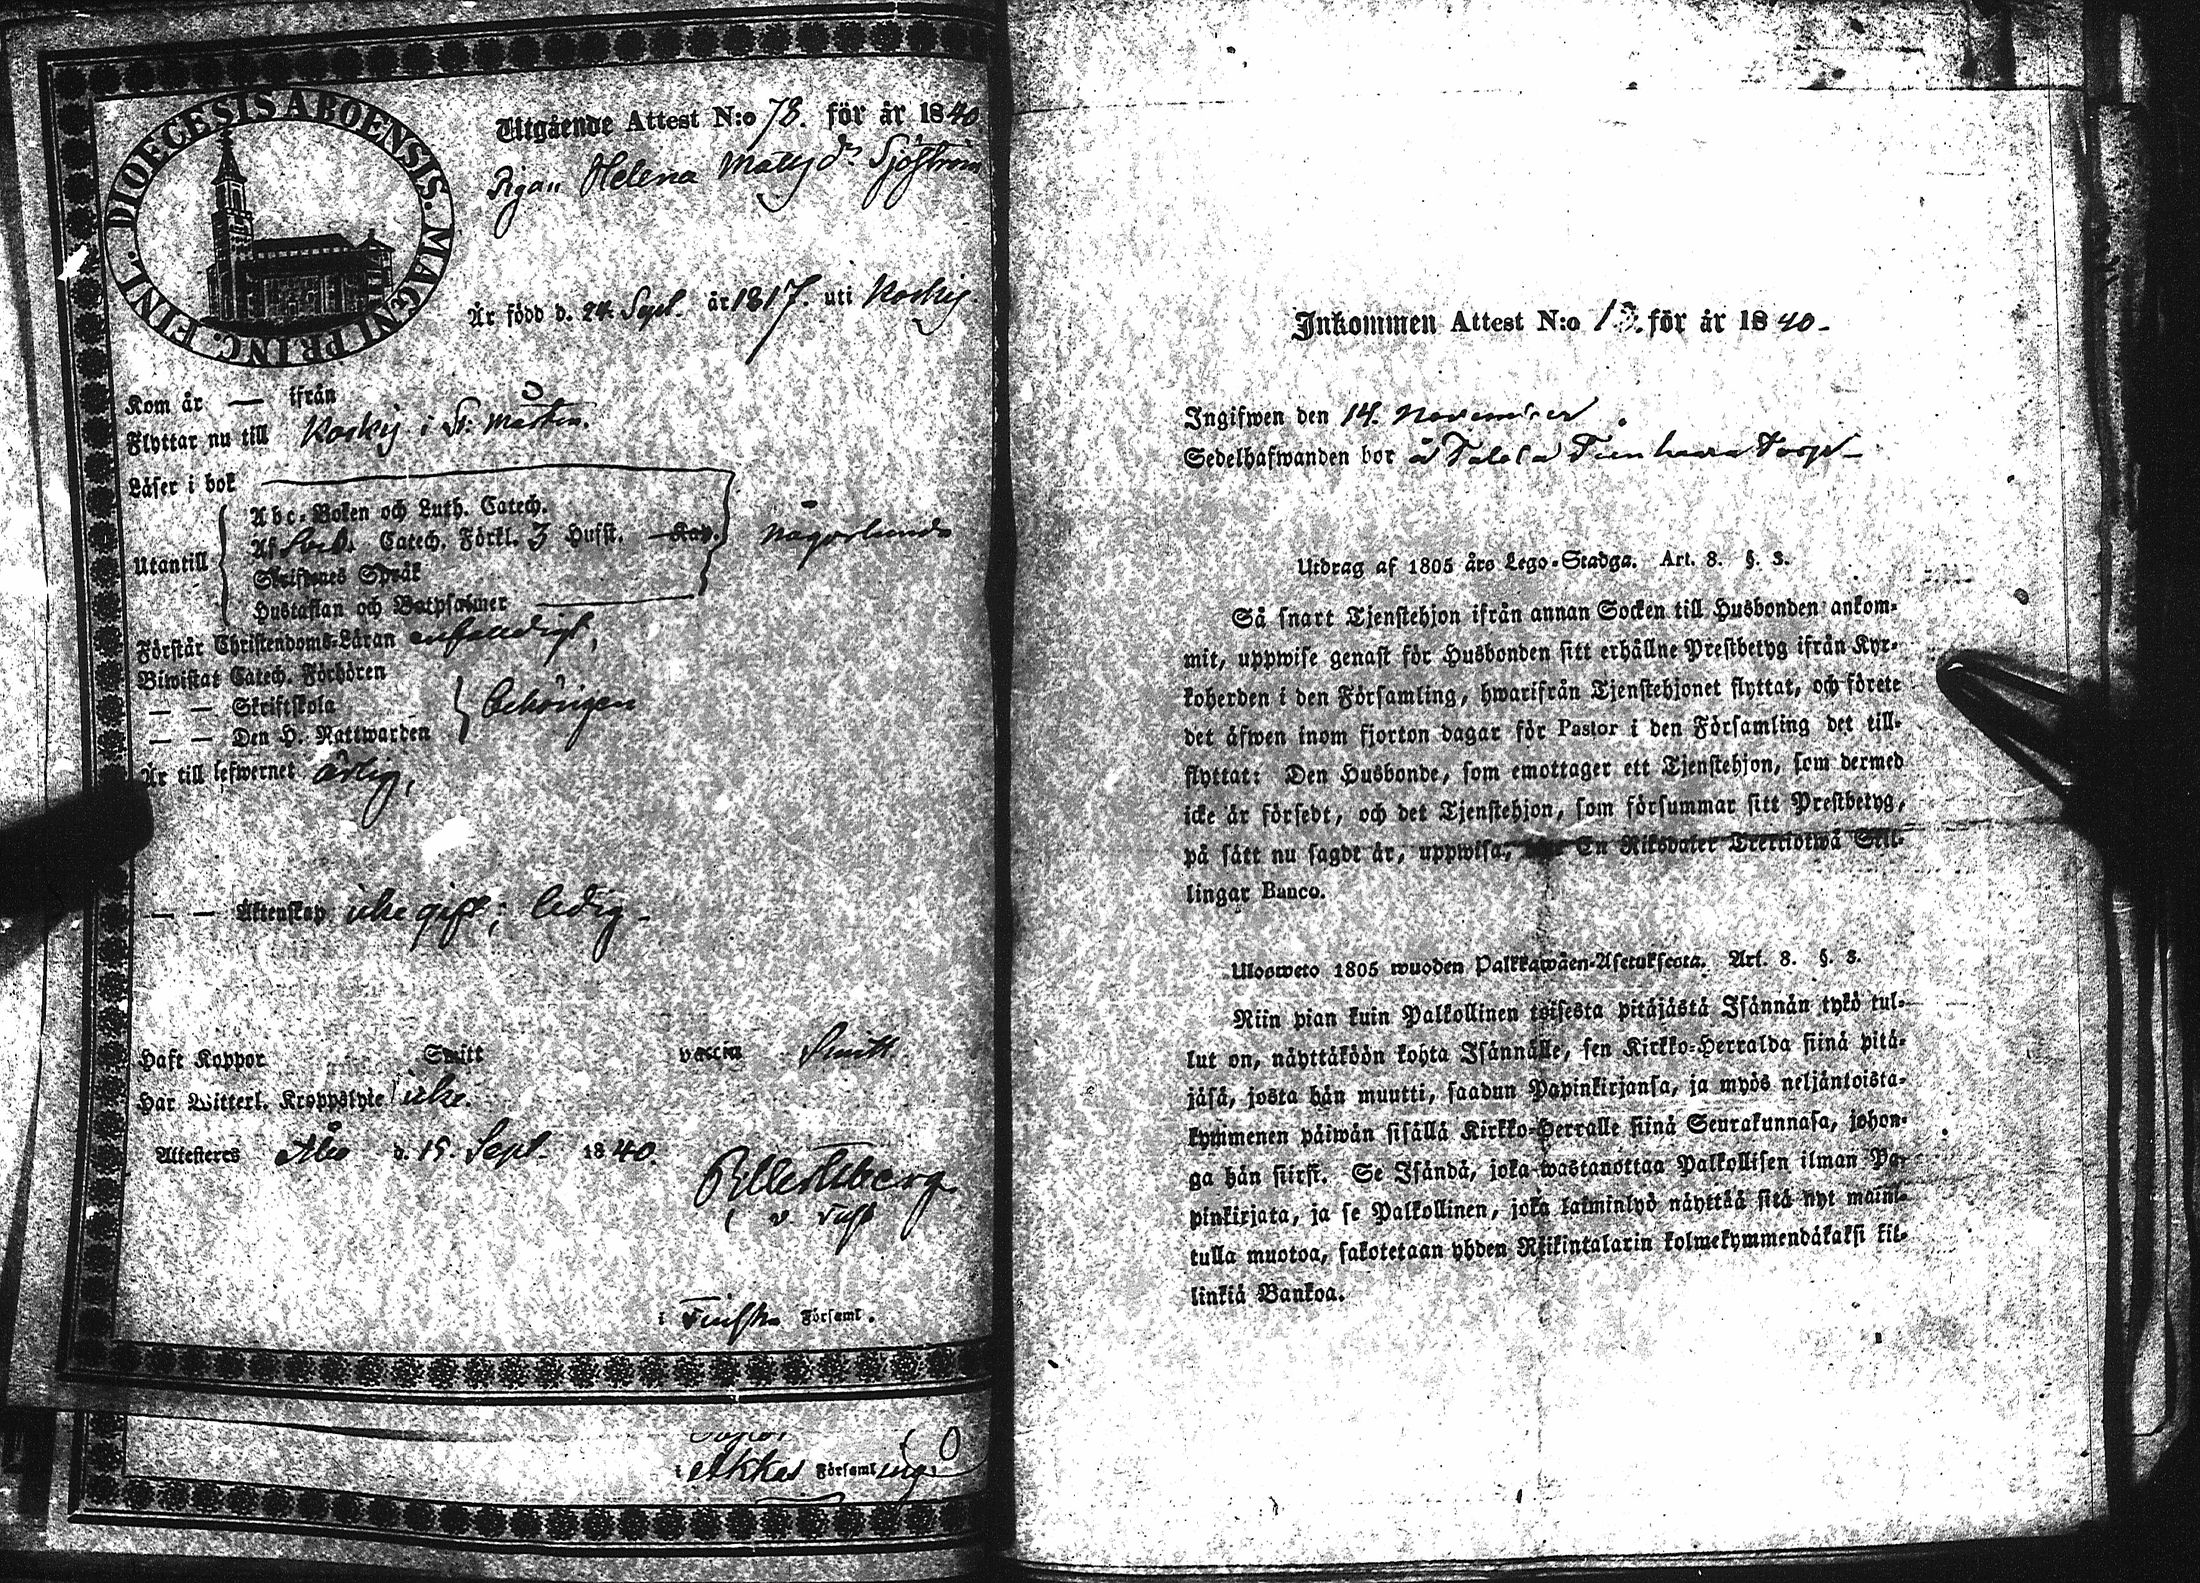 DIOECESIS ABOENSIS. MAGNI PRINC. FINL.
Utgående Attest N:o 78. för år 1840.
Pigan Helena Matts dr Sjöström
Är född d. 24 Sept. år 1817. uti Koskis.
Kom år — ifrån
Flyttar nu till Koskis i St: Mårtens.
Läser i bok
Utantill
Abc-Boken och Luth. Catech.
Af Sveb. Catech. Förkl. 3 Hufst. — Kap.
någorlunda
Skriftenes Språk
Hustaflan och Botpsalmer
Förstår Christendoms-Läran enfaldigt,
Biwistat Catech. Förhören
— — Skriftskola
behörigen
— — Den H. Nattwarden
Är till lefwernet ärlig,
— — Äktenskap icke gift; ledig -
Haft Koppor Smitt vaccin Smitt.
Har Witterl. Kroppslyte icke.
Attesteres Åbo d. 15. Sept. 1840.
i Finska Församl.
i Akkas Församling
Inkommen Attest N:o 13. för år 1840-
Ingifwen den 14. November
Sedelhafwanden bor å Torp
Utdrag af 1805 års Lego-Stadga. Art. 8. §. 3.
Så snart Tjenstehjon ifrån annan Socken till Husbonden ankom-
mit, uppwise genast för Husbonden sitt erhållne Prestbetyg ifrån Kyr-
koherden i den Församling, hwarifrån Tjenstehjonet flyttat, och förete
det äfwen inom fjorton dagar för Pastor i den Församling det till-
flyttat: Den Husbonde, som emottager ett Tjenstehjon, som dermed
icke är försedt, och det Tjenstehjon, som försummar sitt Prestbetyg,
på sätt nu sagdt är, uppwisa, En Riksdaler Trettiotwå Skil-
lingar Banco.
Ulosweto 1805 wuoden Palkkawäen-Asetuksesta. Art. 8. §. 3.
Niin pian kuin Palkollinen toisesta pitäjästä Isännän tykö tul-
lut on, näyttäköön kohta Isännälle, sen Kirkko-Herralda siinä pitä-
jäsä, josta hän muutti, saadun Papinkirjansa, ja myös neljäntoista-
kymmenen päiwän sisällä Kirkko-Herralle siinä Seurakunnasa, johon-
ga hän siirsi. Se Isändä, joka wastanottaa Palkollisen ilman Pa-
pinkirjata, ja se Palkollinen, joka laiminlyö näyttää sitä nyt maini-
tulla muotoa, sakotetaan yhden Riikintalarin kolmekymmendäkaksi kil-
linkiä Bankoa.